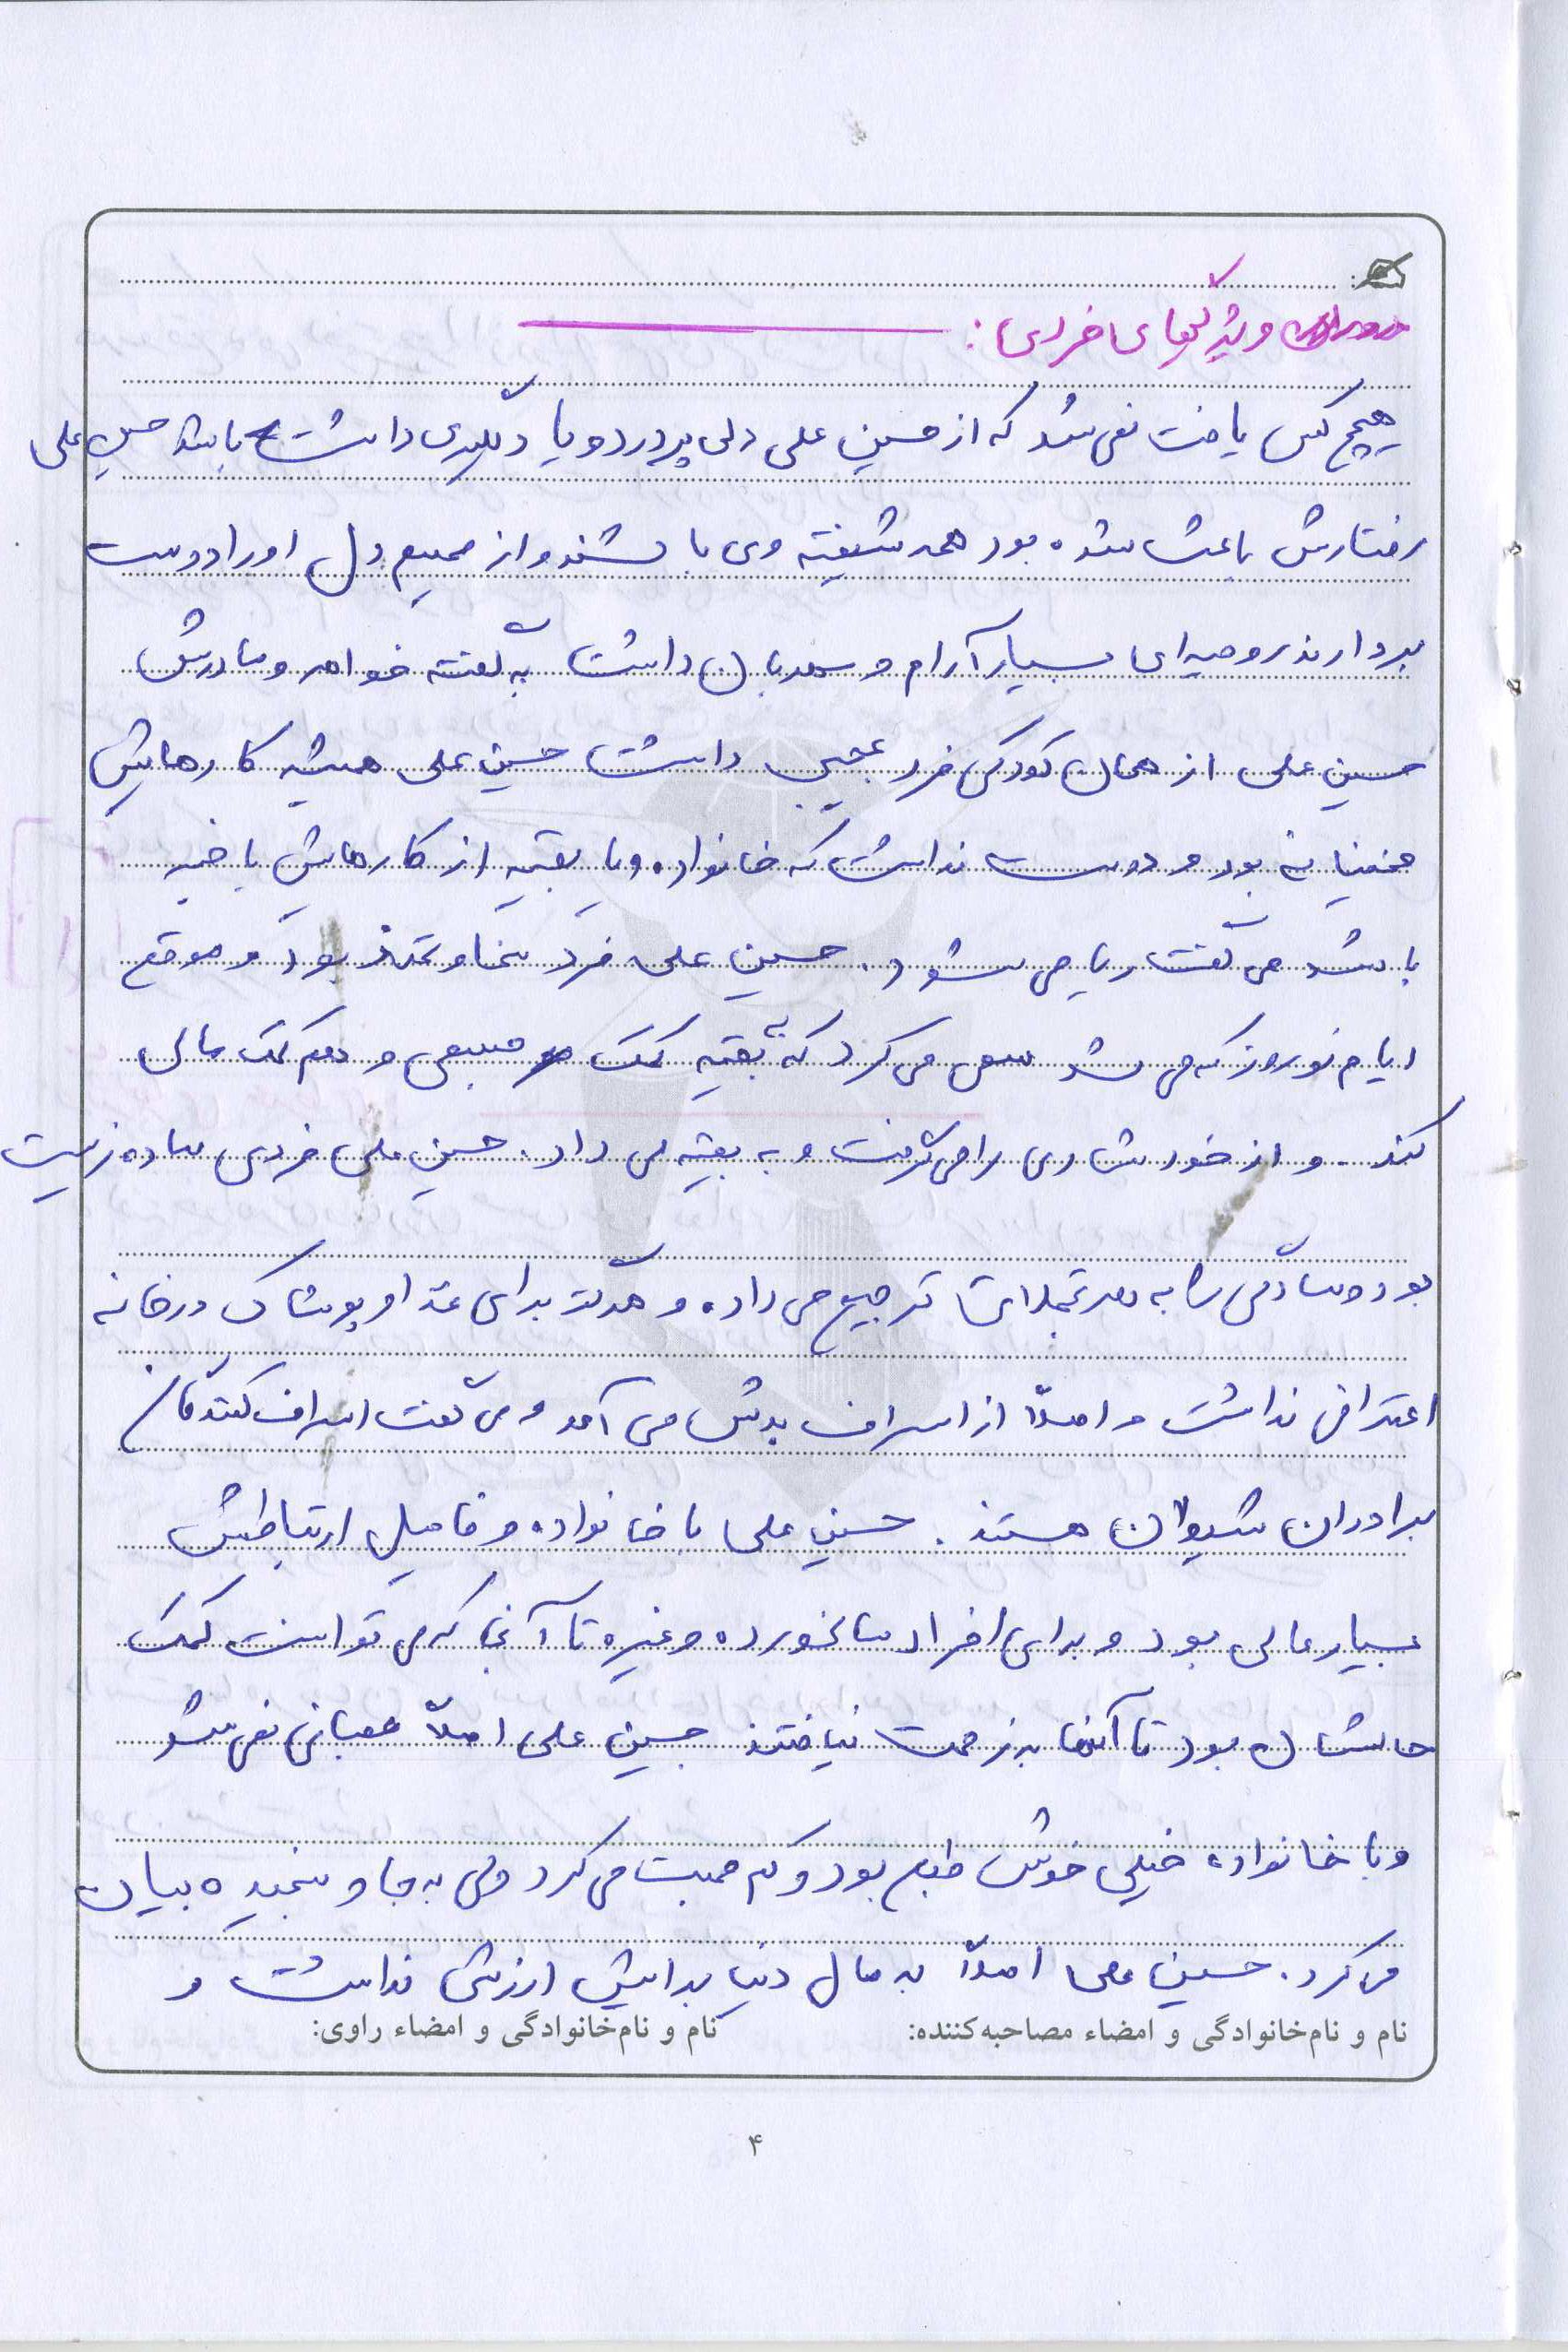 ویژگیهای فردی:
هیچ کس یافت نمی شد که از حسین علی دلی پردرد و یا دلگیری داشت باشد حسین علی
رفتارش باعث شده بود همه شیفته وی باشند و از صمیم دل او را دوست
بردارند روحیه ای بسیار آرام و مهربان داشت به گفته خواهر و مادرش
حسین علی از همان کودکی فرد عجیبی داشت حسین علی همیشه کارهایش
مخفیانه بود و دوست نداشت که خانواده و یا بقیه از کارهایش با خبر
باشد می گفت ریا می شود. حسین علی فرد سخاوتمند بود و موقع
ایام نوروز که می شد سعی می کرد که به بقیه کمک و هم کمک مالی
کند. و از خود شادی را می گرفت و به بقیه می داد. حسین علی فردی ساده زیست
بود و سادگی را به تجملات ترجیح می داده و هرگز برای غذا و پوشاک در خانه
اعتراض نداشت و اصلاً از اسراف بدش می آمد و می گفت اسراف کنندگان
برادران شیطان هستند. حسین علی با خانواده و فامیل ارتباطش
بسیار عالی بود و برای افراد سالخورده و غیره تا آنجا که می توانست کمک
حالشان بود تا آنها به زحمت نیافتند حسین علی اصلاً عصبانی نمی شد
و با خانواده خیلی خوش طبع بود و کم صحبت می کرد ولی به جا و سنجیده بیان
می کرد. حسین علی اصلاً به مال دنیا برایش ارزش نداشت و
نام و نام‌خانوادگی و امضاء مصاحبه‌کننده: نام و نام‌خانوادگی و امضاء راوی:
۴